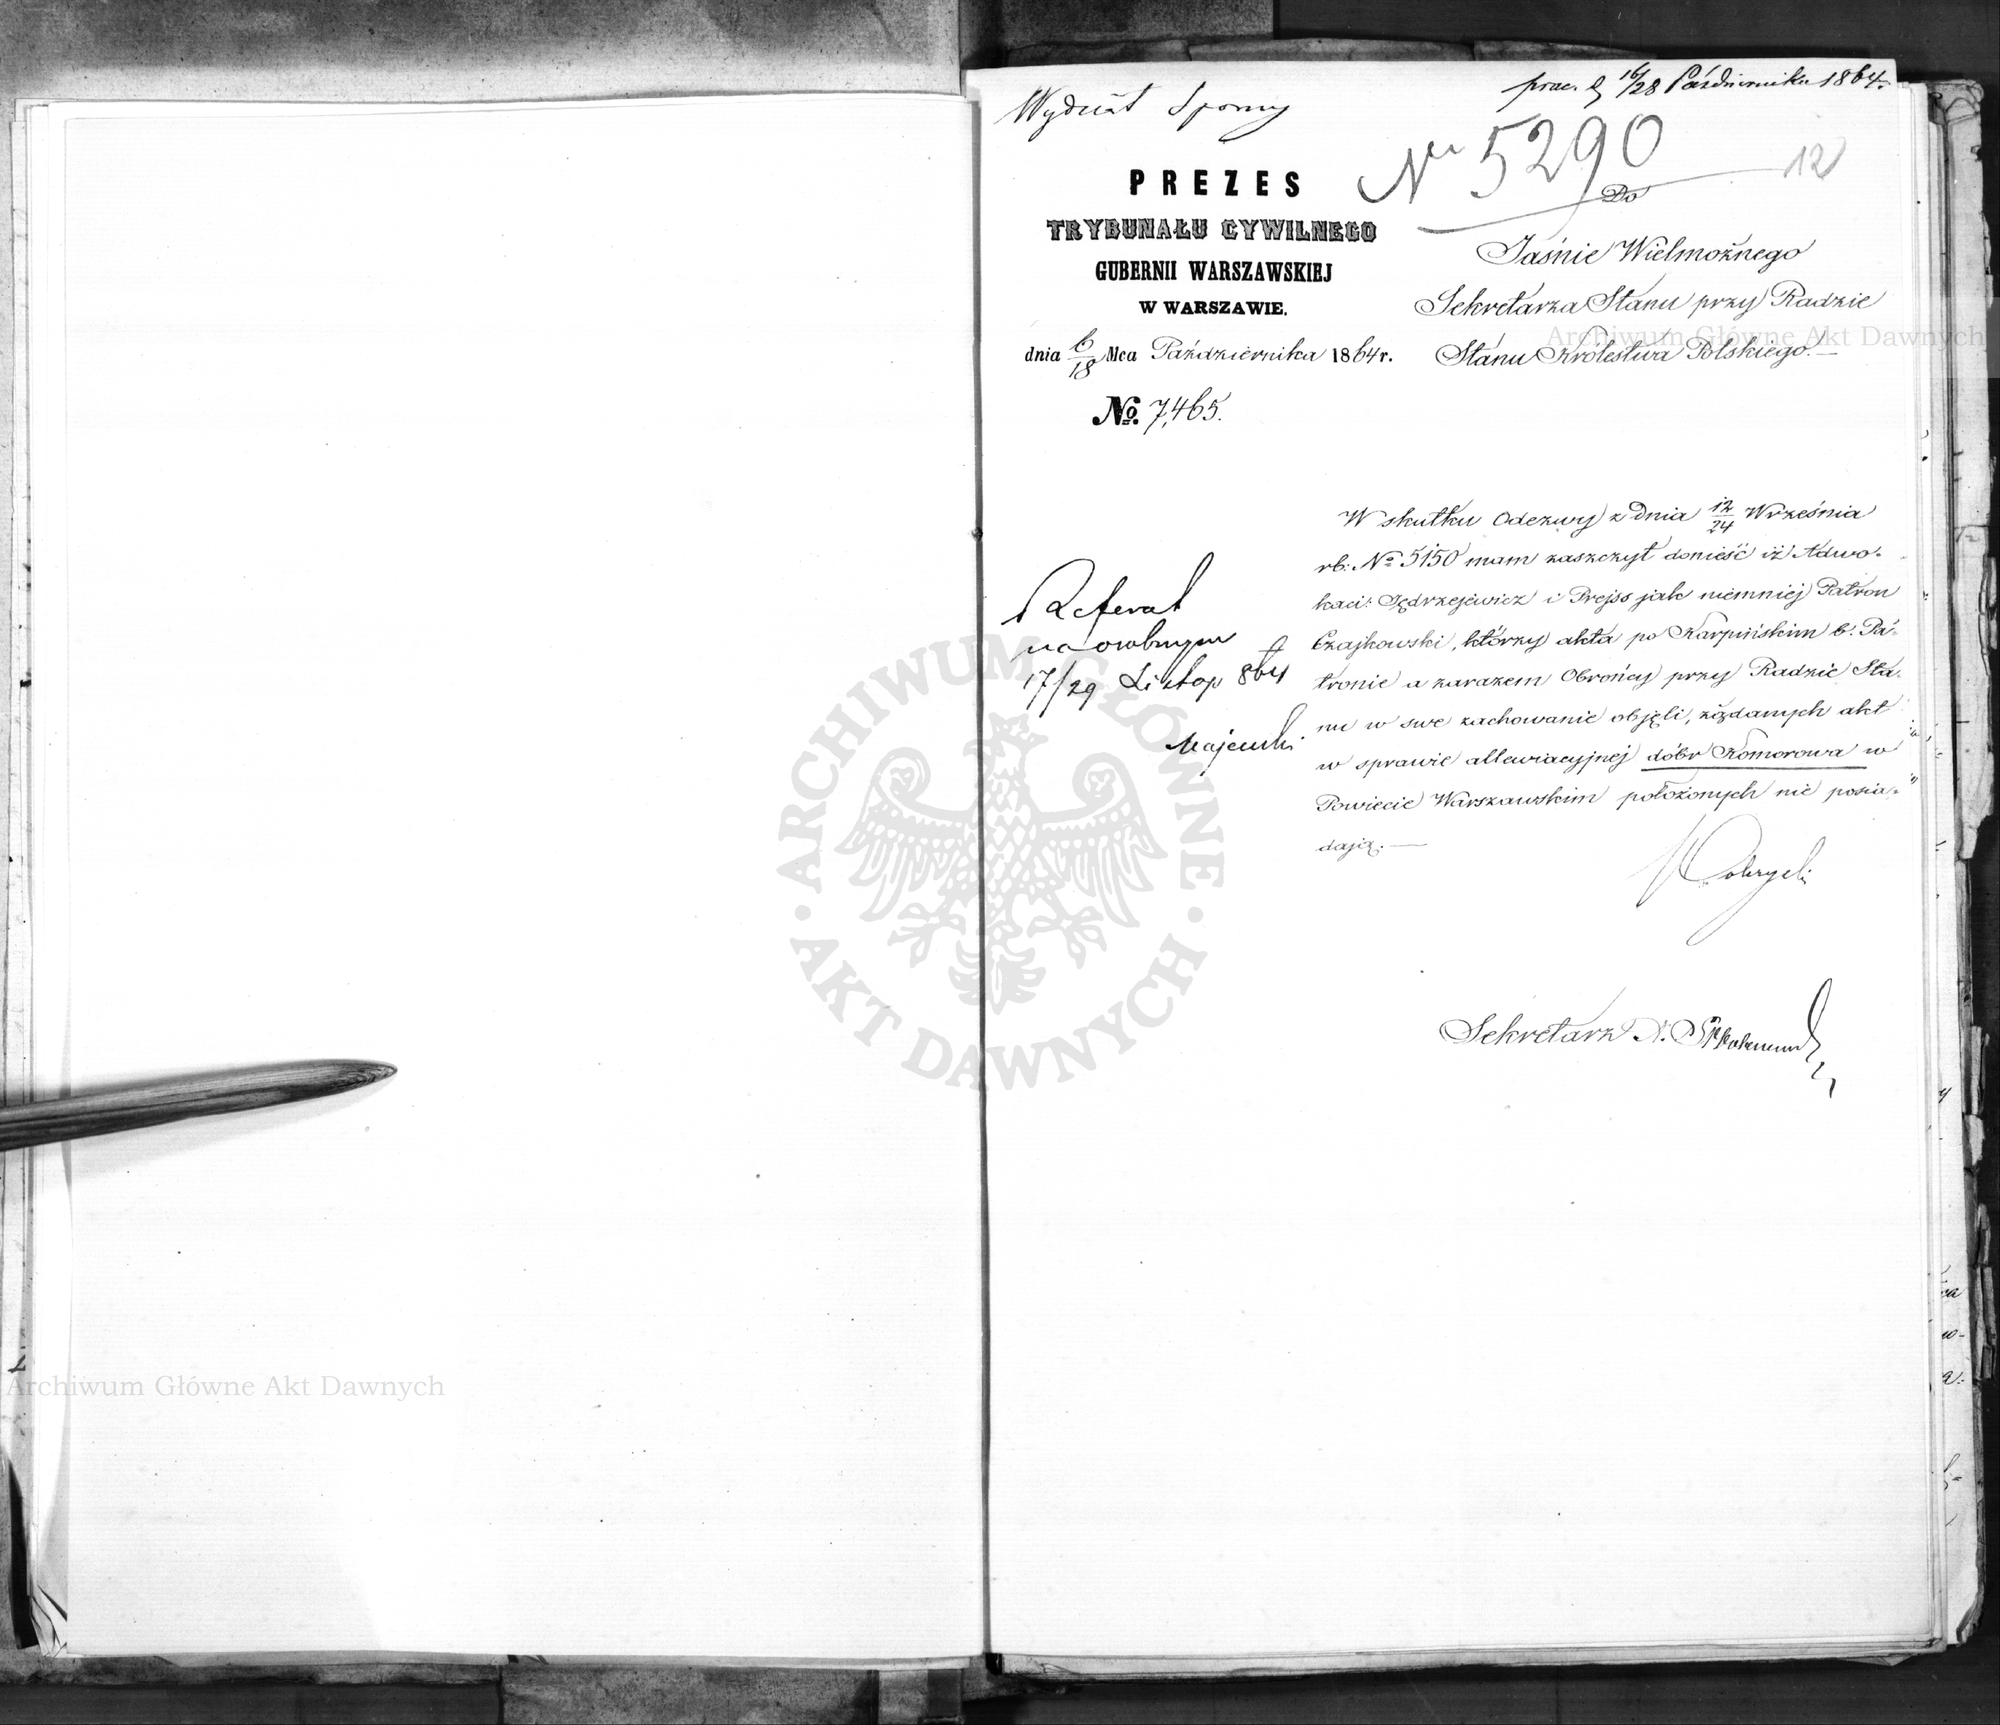 Wydział Sporny
16/28 Październiku 1864.
Nr 5290
12
PREZES
TRYBUNAŁU CYWILNEGO
GUBERNII WARSZAWSKIEJ
W WARSZAWIE.
dnia 6/18 Mca Października 1864 r.
No. 7,465.
Do
Jaśnie Wielmożnego
Sekretarza Stanu przy Radzie
Stanu Królestwa Polskiego.—
W skutku Odezwy z dnia 12/24 Września
rb: No 5150 mam zaszczyt donieść iż Adwo-
kaci: Jędrzejewicz i Prejss jak niemniej Patron
Czajkowski, którzy akta po Karpińskim b. Pa-
tronie a zarazem Obrońcy przy Radzie Sta-
nu w swe zachowanie objęli, żądanych akt
w sprawie allewiacyjnej dóbr Komorowa w
Powiecie Warszawskim położonych nie posia-
dają.—
Referat
na osobnym
17/29 Listop 864
Majewski
Sekretarz
Archiwum Główne Akt Dawnych
ARCHIWUM GŁÓWNE
· AKT DAWNYCH ·
Archiwum Główne Akt Dawnych